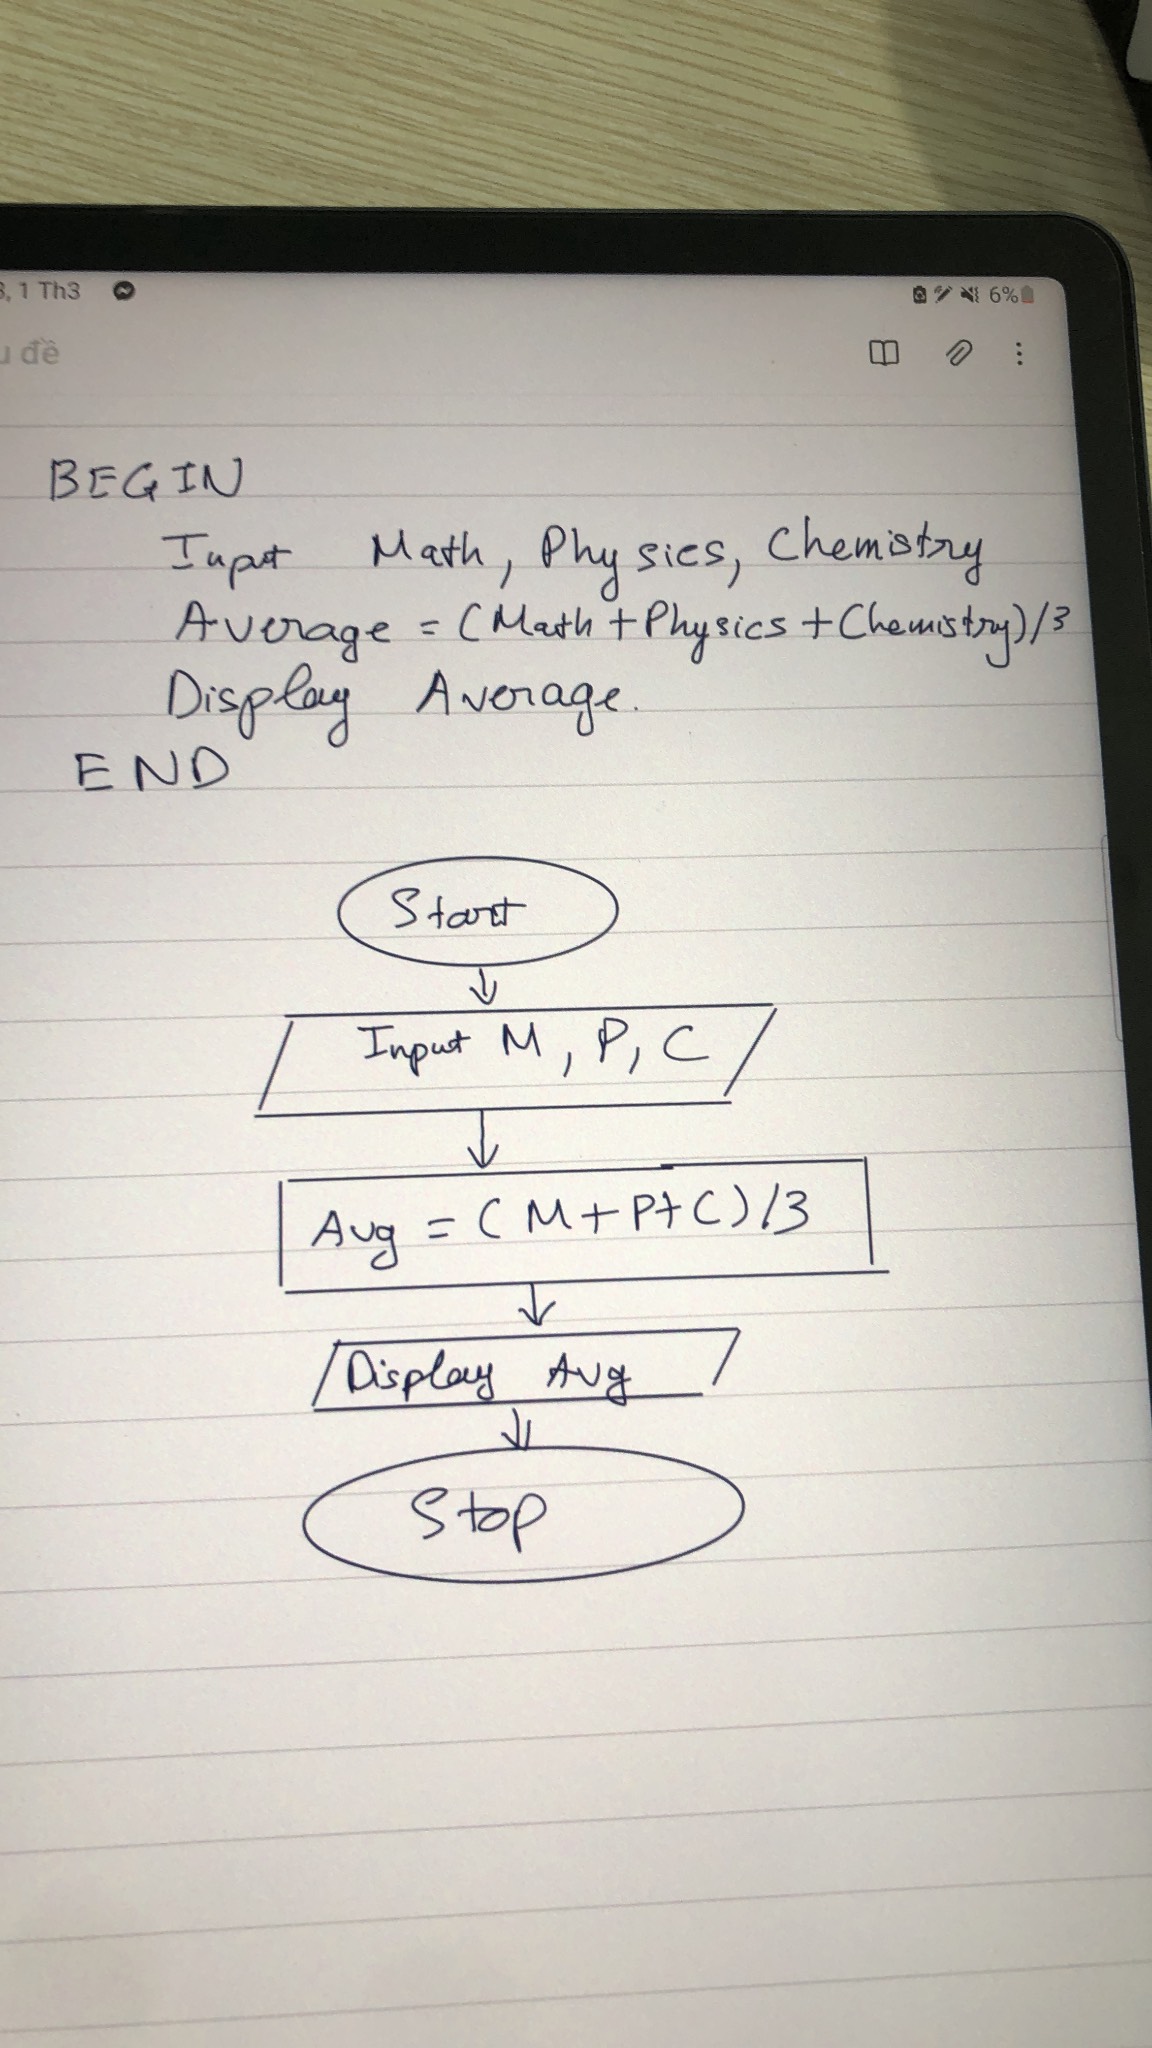 8, 1 Th3 6%
u đề
BEGIN
Input Math, Physics, Chemistry
Average = (Math + Physics + Chemistry)/3
Display Average.
END
Start
Input M, P, C
Avg = (M + P + C)/3
Display Avg
Stop